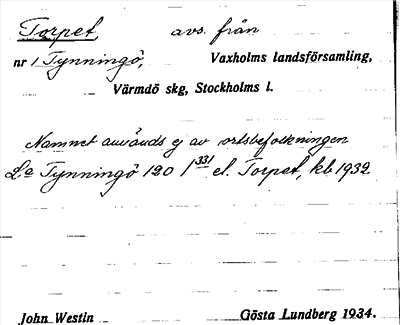 Torpet avs. från
nr 1 Tynningö, Vaxholms landsförsamling,
Värmdö skg, Stockholms l.
Namnet användes ej av ortsbefolkningen
La Tynningö 120 1 331 el. Torpet, kb 1932
John Westin Gösta Lundberg 1934.